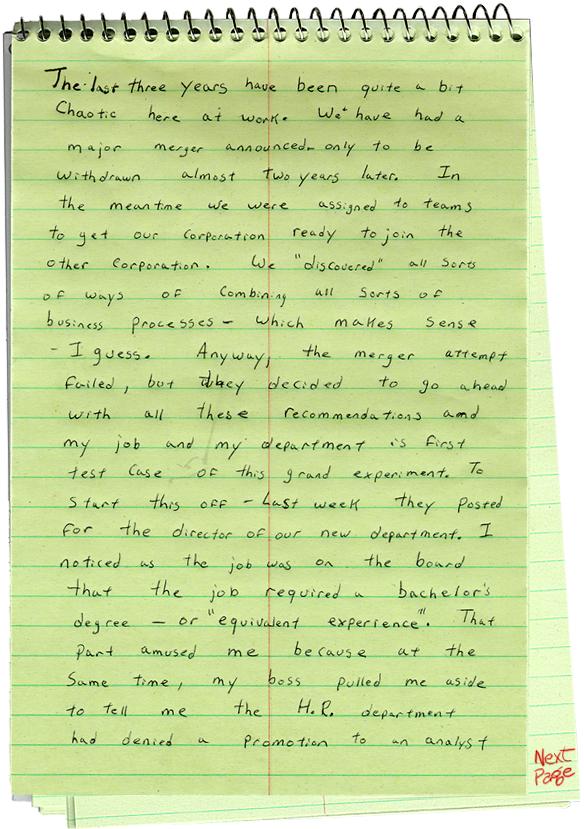 The last three years have been quite a bit
Chaotic here at work. We have had a
major merger announced only to be
withdrawn almost two years later. In
the meantime we were assigned to teams
to get our corporation ready to join the
other corporation. We "discovered" all sorts
of ways of combining all sorts of
business processes - which makes sense
- I guess. Anyway, the merger attempt
failed, but they decided to go ahead
with all these recommendations and
my job and my department is first
test case of this grand experiment. To
start this off - Last week they posted
for the director of our new department. I
noticed as the job was on the board
that the job required a bachelor's
degree - or "equivalent experience". That
part amused me because at the
same time, my boss pulled me aside
to tell me the H.R. department
had denied a promotion to an analyst
Next
Page